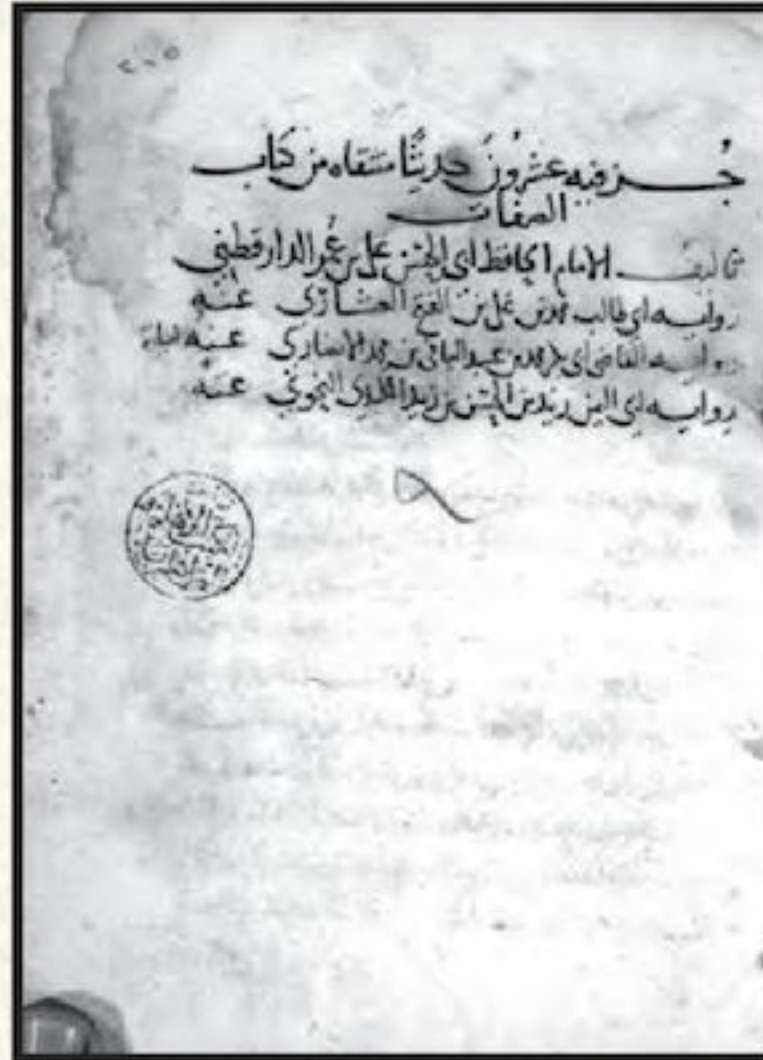 ٢٠٥
جـزؤ فيه عشرون حديثا منتقاه من كتاب
الصفات
تاليف الامام الحافظ ابي الحسن علي بن عمر الدارقطني
رواية ابي طالب محمد بن علي بن الفتح العشاري عنه
رواية القاضي ابي بكر محمد بن عبد الباقي بن محمد الانصاري عنه
رواية ابي اليمن زيد بن الحسن بن زيد الكندي النحوي عنه